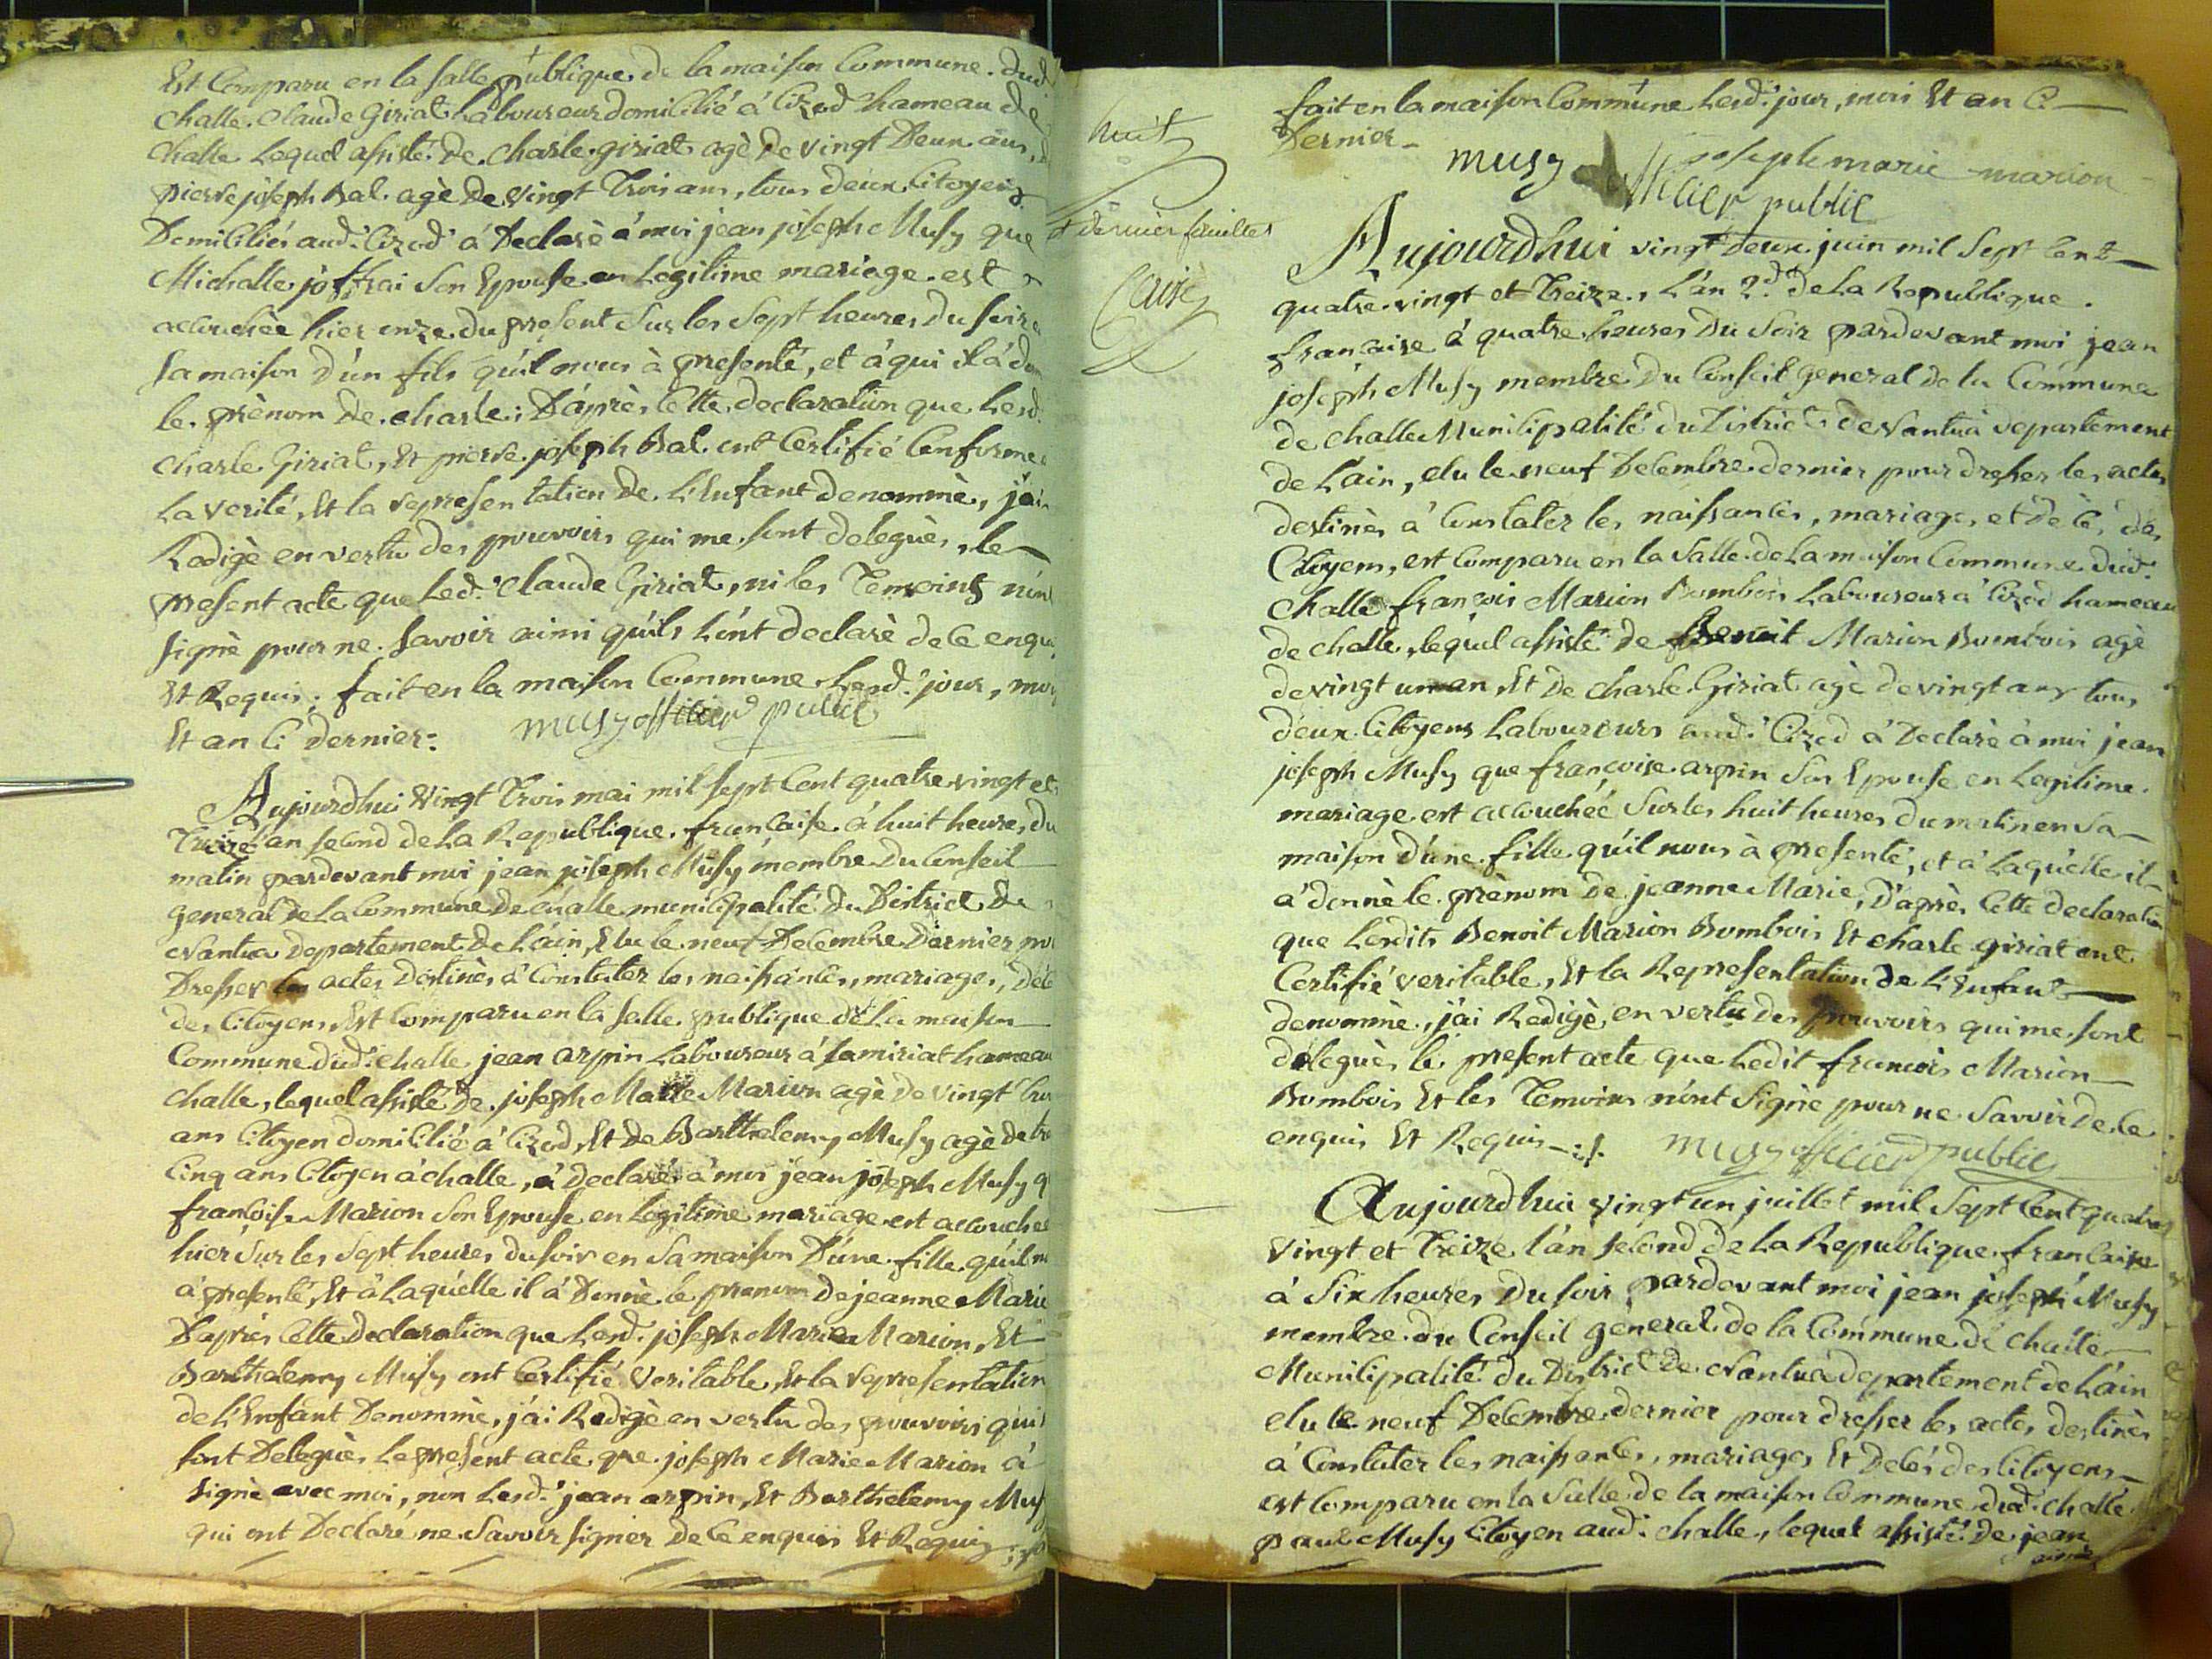 Est Comparu en la salle publique de la maison Commune dud.
challe Claude Giriat Laboureur domicilié à Cizod hameau de
challe Lequel assisté de charle giriat agè de vingt Deux ans,
pierre joseph Bal agè De vingt Trois ans, tous deux Citoyens
Domiciliés aud. Cizod à Declarè à moi jean joseph Musy que
Michalle joffrai Son Epouse en Legitime mariage est
accouchèe hier onze du present Sur les Sept heures du soir
sa maison D'un fils qu'il nous à presenté, et à qui il à
le prènom de charle; D'après Cette declaration que Lesd.
Charle Giriat, Et pierre joseph Bal ont Certifié Conforme
La verité, Et la representation de L'Enfant denommè, j'ai
Redigè en vertu des pouvoirs qui me sont deleguès, le
present acte que Led. Claude Giriat, ni les Temoins n'ont
signè pour ne Savoir ainsi qu'ils L'ont declarè de ce enquis
Et Requis; fait en la maison Commune Lesd. jour, mois
Et an Ci Dernier. musy officier public
Aujourdhui Vingt Trois mai mil sept Cent quatre vingt et
Treize l'an second de La Republique francaise à huit heures du
matin pardevant moi jean joseph Musy membre du Conseil
general de La Commune de challe municipalité du District de
Nantua departement de L'ain, Elu le neuf Decembre Dernier
Dresser les actes Destinès à Constater les naissances, mariages,
des Citoyens, Est Comparu en la Salle publique de La maison
Commune dud. challe jean arpin Laboureur à samiriat hameau
challe, lequel assisté De joseph Marie Marion agè de vingt
ans Citoyen domicilié à Cizod, Et de Barthelemy Musy agè de
Cinq ans Citoyen à challe, à declaré à moi jean joseph Musy
francoise Marion Son Epouse en Legitime mariage est accouchee
hier sur les Sept heures du soir en Sa maison D'une fille qu'il
à presenté, Et à Laquelle il à Donnè le prenom de jeanne Marie
D'après Cette Declaration que Lesd. joseph Marie Marion, Et
Barthelemy Musy ont Certifié Veritable, Et la representation
de L'Enfant Denommè, j'ai Redigè en vertu des pouvoirs qui
sont Deleguès Le present acte que joseph Marie Marion à
Signè avec moi, non Lesd. jean arpin, Et Barthelemy
qui ont Declaré ne Savoir signer de ce enquis Et Requis
huit
dernier feuillet
fait en la maison Commune Lesd. jour, mois Et an Ci
Dernier
musy joseph marie marion
officier public
Aujourdhui vingt deux juin mil Sept Cent
quatre vingt et Treize, L'an 2d. de La Republique
francaise à quatre heures du Soir pardevant moi jean
joseph Musy membre du Conseil general de la Commune
de challe Municipalité du District de Nantua departement
de L'ain, elu le neuf Decembre dernier pour dresser les actes
destinès à Constater les naissances, mariages et Decès des
Citoyens, est Comparu en la Salle de La maison Commune dud.
challe françois Marion Bombois Laboureur à Cizod hameau
de challe, lequel assisté de Benoit Marion Bombois agè
de vingt un an, Et De charle Giriat agè de vingt ans tous
deux Citoyens Laboureurs aud. Cizod à Declaré à moi jean
joseph Musy que francoise arpin Son Epouse en Legitime
mariage est accouchéé Sur les huit heures du matin en Sa
maison d'une fille qu'il nous à presenté, et à Laquelle il
à donnè le prènom de jeanne Marie; D'après Cette declaration
que Lesdits Benoit Marion Bombois Et charle giriat ont
Certifié veritable, Et la Representation de L'Enfant
denommè, j'ai Redigè en vertu des pouvoirs qui me sont
deleguès le present acte que Ledit francois Marion
Bombois Et les Temoins n'ont Signè pour ne Savoir de ce
enquis Et Requis musy officier public
Aujourdhui vingt un juillet mil Sept Cent quatre
vingt et Treize l'an Second de La Republique francaise
à Six heures du soir pardevant moi jean joseph Musy
membre du Conseil general de la Commune de challe
Municipalité du District de Nantua departement de L'ain
elu le neuf Decembre dernier pour dresser les actes destinès
à Constater les naissances, mariages Et Decés des Citoyens
est Comparu en la Salle de la maison Commune dud. challe
paul Musy Citoyen aud. challe, lequel assisté de jean